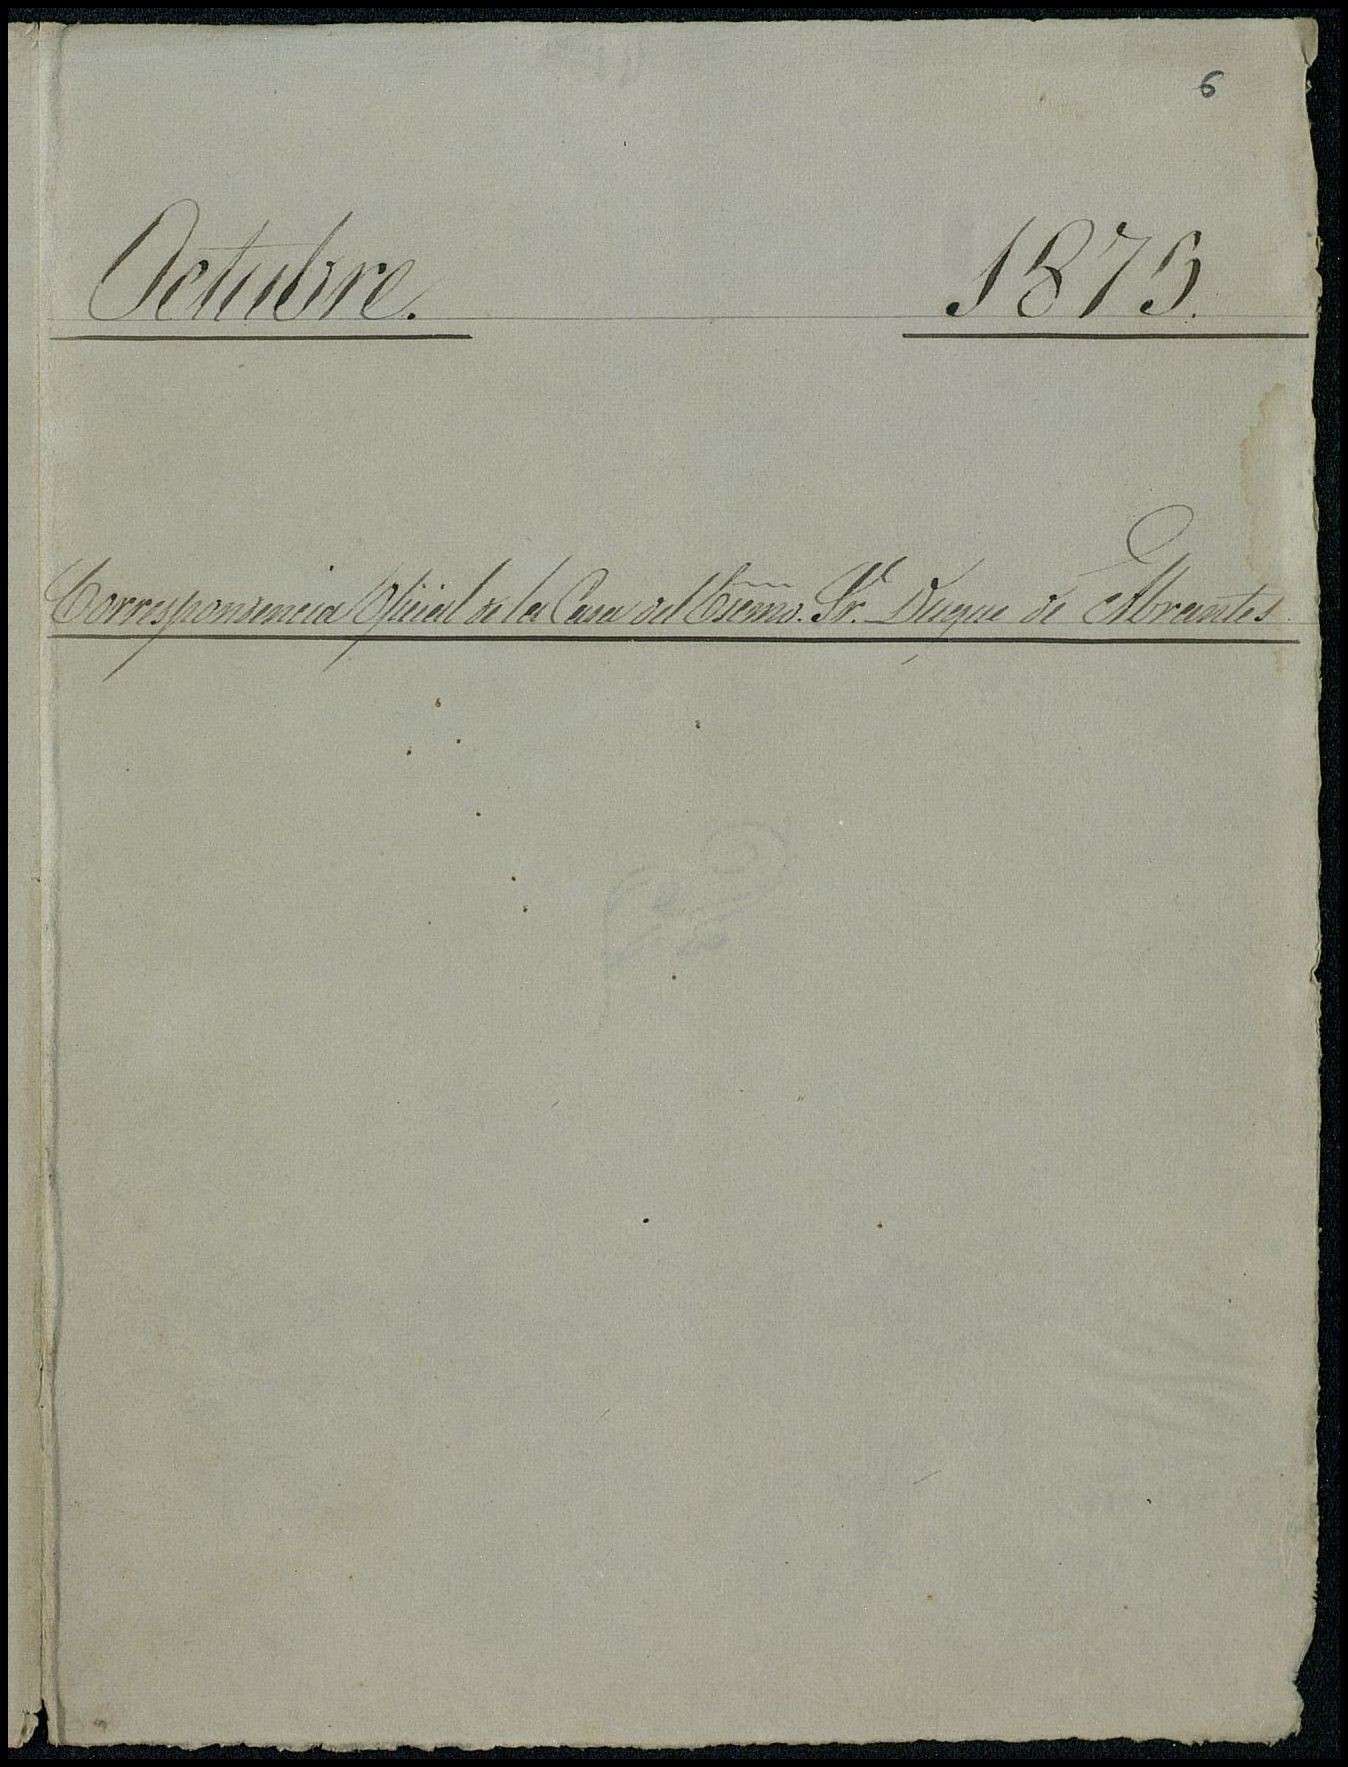 6
Octubre. 1879.
Correspondencia Oficial de la Casa del Escmo. Sr. Duque de Abrantes